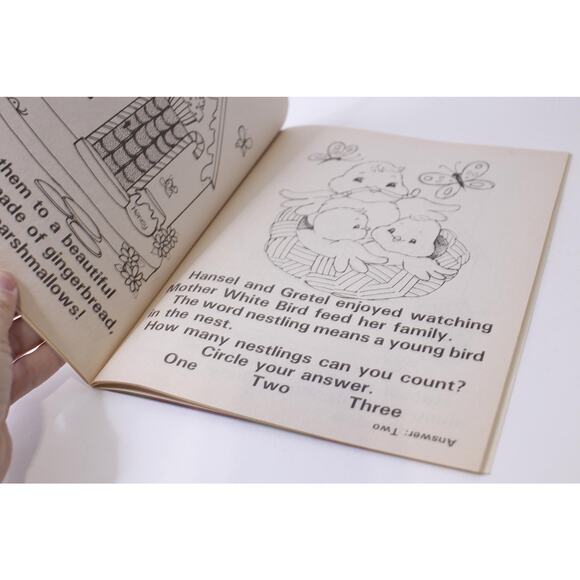 them to a beautiful
ade of gingerbread,
arshmallows!
Hansel and Gretel enjoyed watching
Mother White Bird feed her family.
The word nestling means a young bird
in the nest.
How many nestlings can you count?
Circle your answer.
One Two Three
Answer: Two